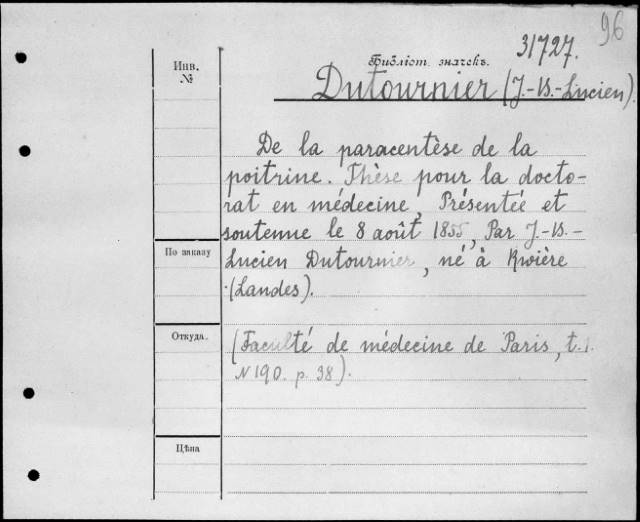 96
31727.
Библіот. значекъ.
Инв.
№
Dutournier (J.-B.-Lucien).
De la paracentèse de la
poitrine. Thèse pour la docto-
rat en médecine, Présentée et
soutenue le 8 août 1855, Par J.-B.-
По заказу
Lucien Dutournier, né à Rwière
(Landes).
Откуда.
(Faculté de médecine de Paris, t. 1.
N 190. p. 38).
Цѣна